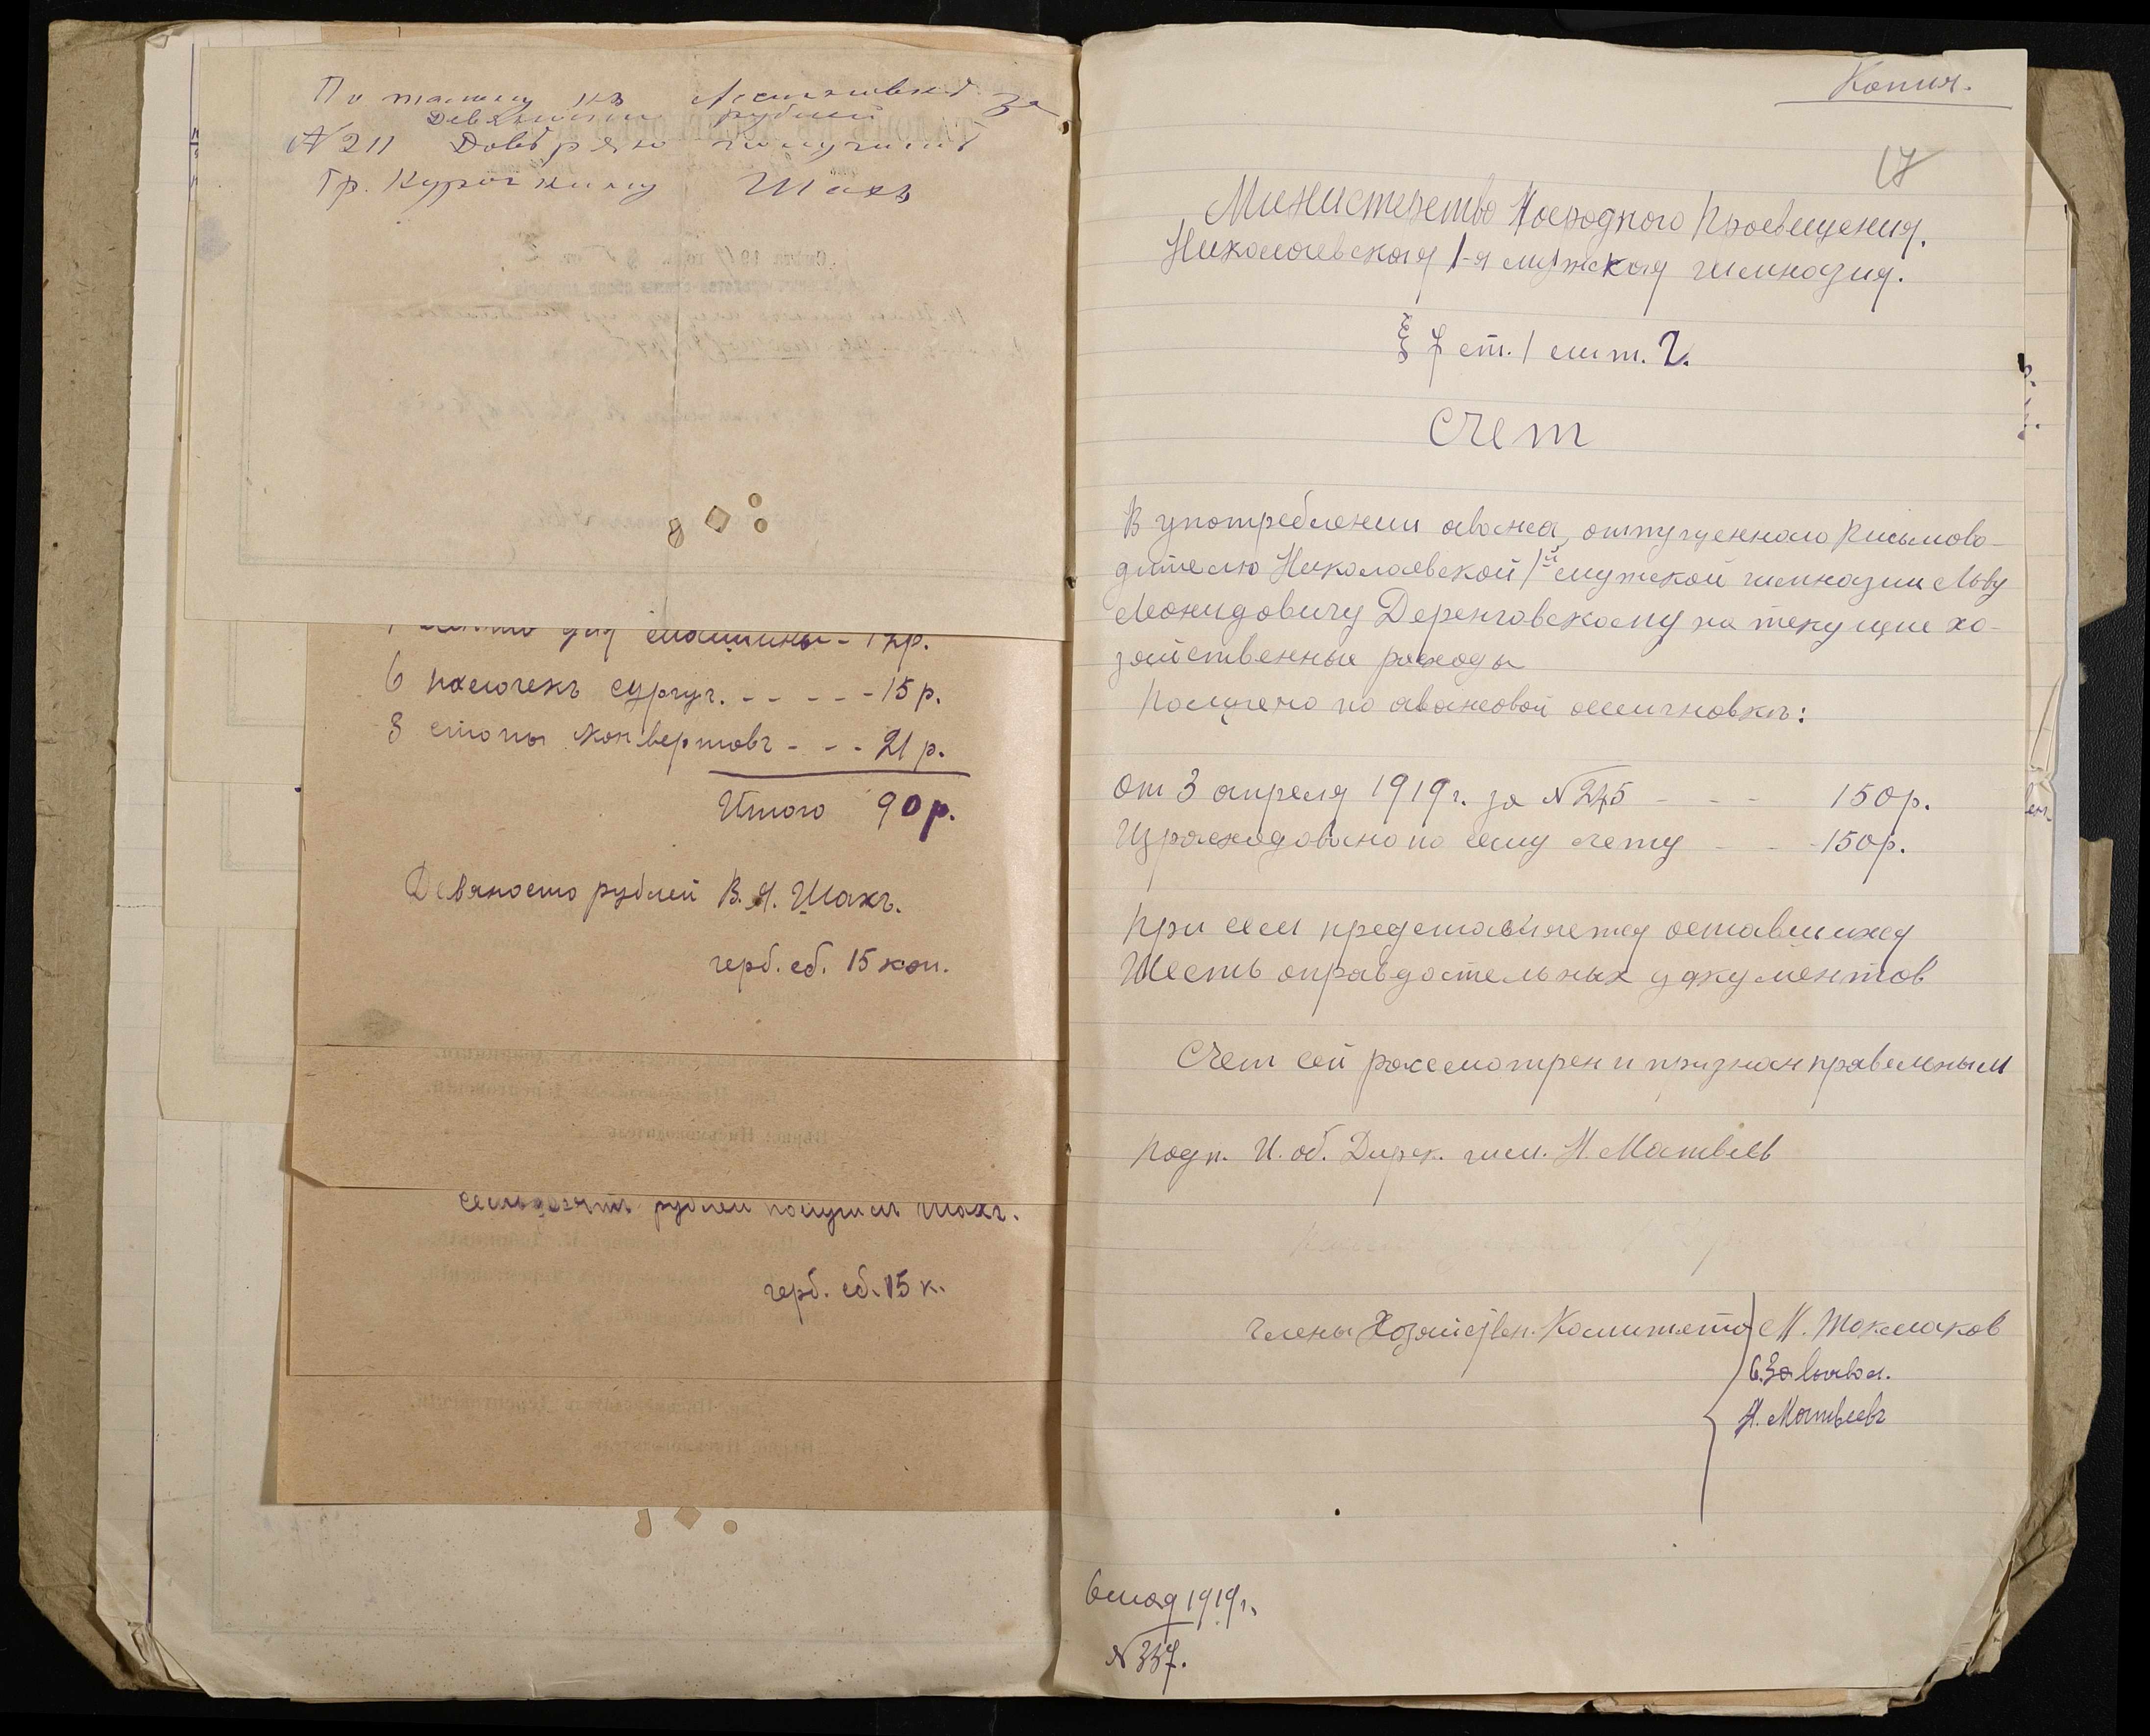 По талону къ Ассигновкѣ за
Девяносто рублей
№ 211 Довѣряю получить
Гр. Курочкину Шахъ
для машины - 12р.
6 палочекъ сургуч. - - - - - 15 р.
3 стопы конвертовъ - - - 21 р.
Итого 90 р.
Девяносто рублей В. Я. Шахъ.
герб. сб. 15 коп.
Семьдесятъ рублей получилъ Шахъ.
герб. сб. 15 к.
Копия.
17
Министерство Народного Просвещения.
Николаевская 1-я мужская гимназия.
§ 7 ст. 1 лит. Г.
Счет
В употреблении аванса, отпущенного Письмово-
дителю Николаевской 1й мужской гимназии Льву
Леонидовичу Деренговскому на текущие хо-
зяйственные расходы
Получено по авансовой ассигновкѣ:
От 3 апреля 1919 г. за № 245 - - - 150 р.
Израсходовано по сему счету - - - 150 р.
При сем представляется оставшихся
Шесть оправдательных документов
Счет сей рассмотрен и признан правельным
Подп. И. об. Дирек. гим. Н. Матвеев
Члены Хозяйствен. Комитета М. Токмаков
Н. Матвеевъ
6 мая 1919 г.
№ 337.